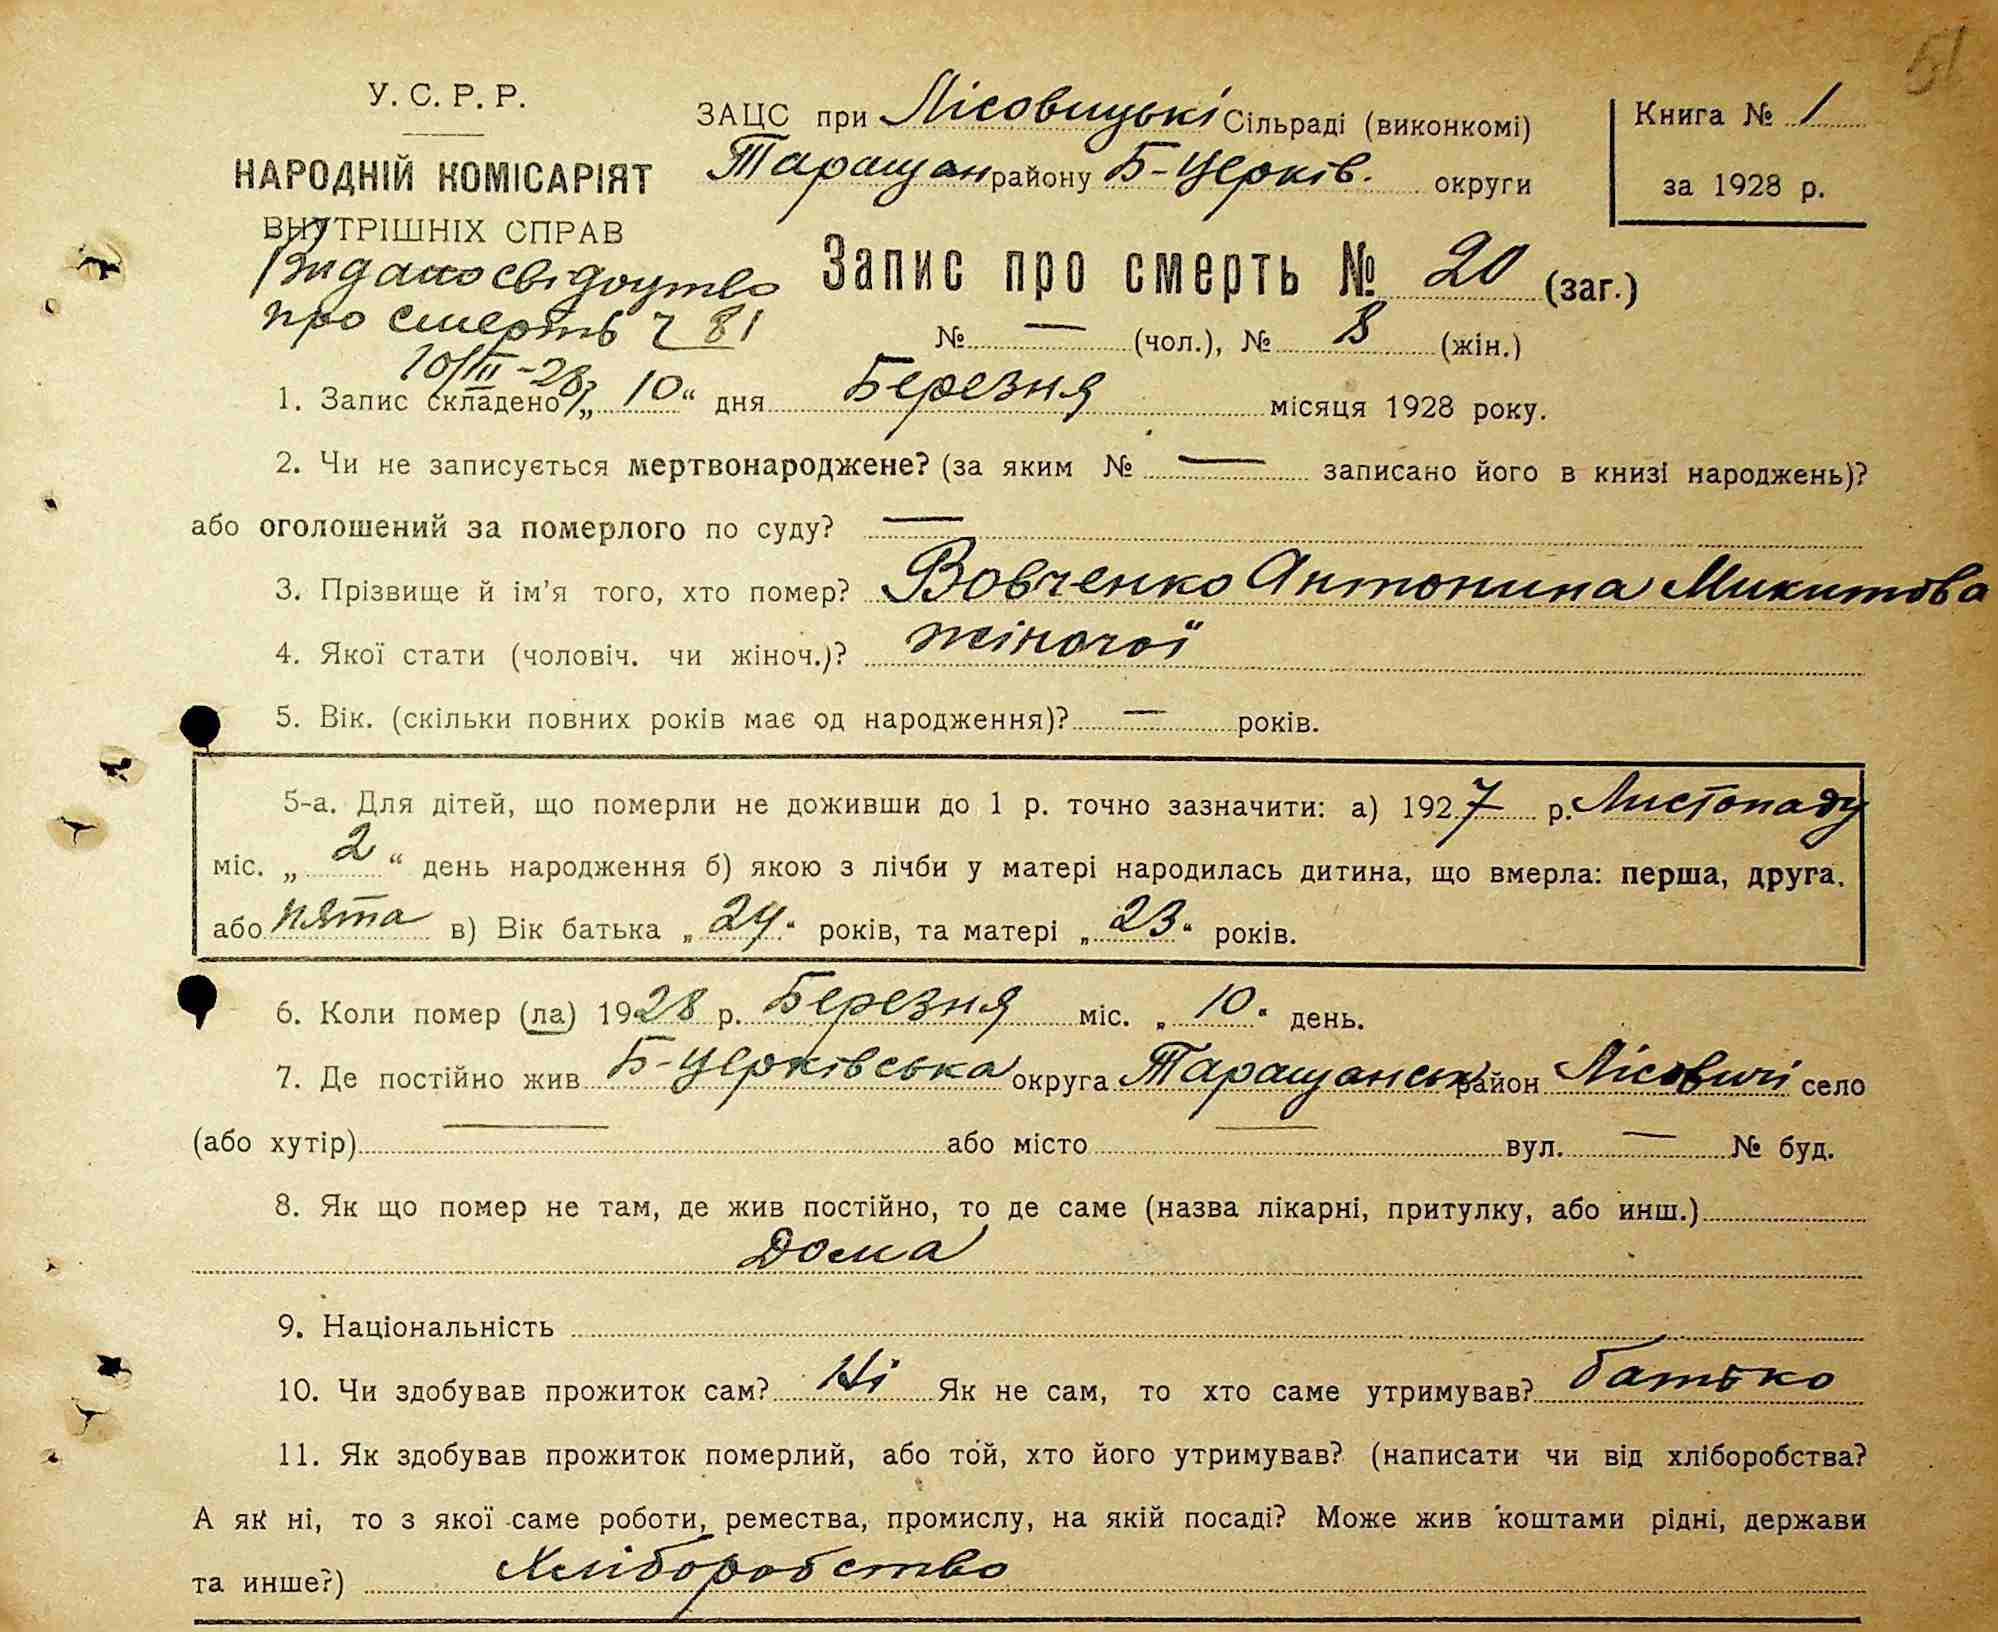 51
У. С. Р. Р.
НАРОДНІЙ КОМІСАРІЯТ
ВНУТРІШНІХ СПРАВ
Видано свідоцтво
про смерть ч 81
10/III-28
ЗАЦС при Лісовицькі Сільраді (виконкомі)
Таращан району Б-Церків. округи
Книга № 1
за 1928 р.
Запис про смерть № 20 (заг.)
№ — (чол.), № 8 (жін.)
1. Запис складено „ 10 “ дня Березня місяця 1928 року.
2. Чи не записується мертвонароджене? (за яким № — записано його в книзі народжень)?
або оголошений за померлого по суду? —
3. Прізвище й ім'я того, хто помер? Вовченко Антонина Микитова
4. Якої стати (чоловіч. чи жіноч.)? жіночої
5. Вік. (скільки повних років має од народження)? — років.
5-а. Для дітей, що померли не доживши до 1 р. точно зазначити: а) 1927 р. Листопаду
міс. „ 2 “ день народження б) якою з лічби у матері народилась дитина, що вмерла: перша, друга,
або пята в) Вік батька „ 24 “ років, та матері „ 23 “ років.
6. Коли помер (ла) 1928 р. Березня міс. „ 10 “ день.
7. Де постійно жив Б-Церківська округа Таращанськ район Лісовичі село
(або хутір) — або місто — вул. — № буд.
8. Як що помер не там, де жив постійно, то де саме (назва лікарні, притулку, або инш.)
Дома
9. Національність
10. Чи здобував прожиток сам? Ні Як не сам, то хто саме утримував? батько
11. Як здобував прожиток померлий, або той, хто його утримував? (написати чи від хліборобства?
А як ні, то з якої саме роботи, ремества, промислу, на якій посаді? Може жив коштами рідні, держави
та инше?) Хліборобство